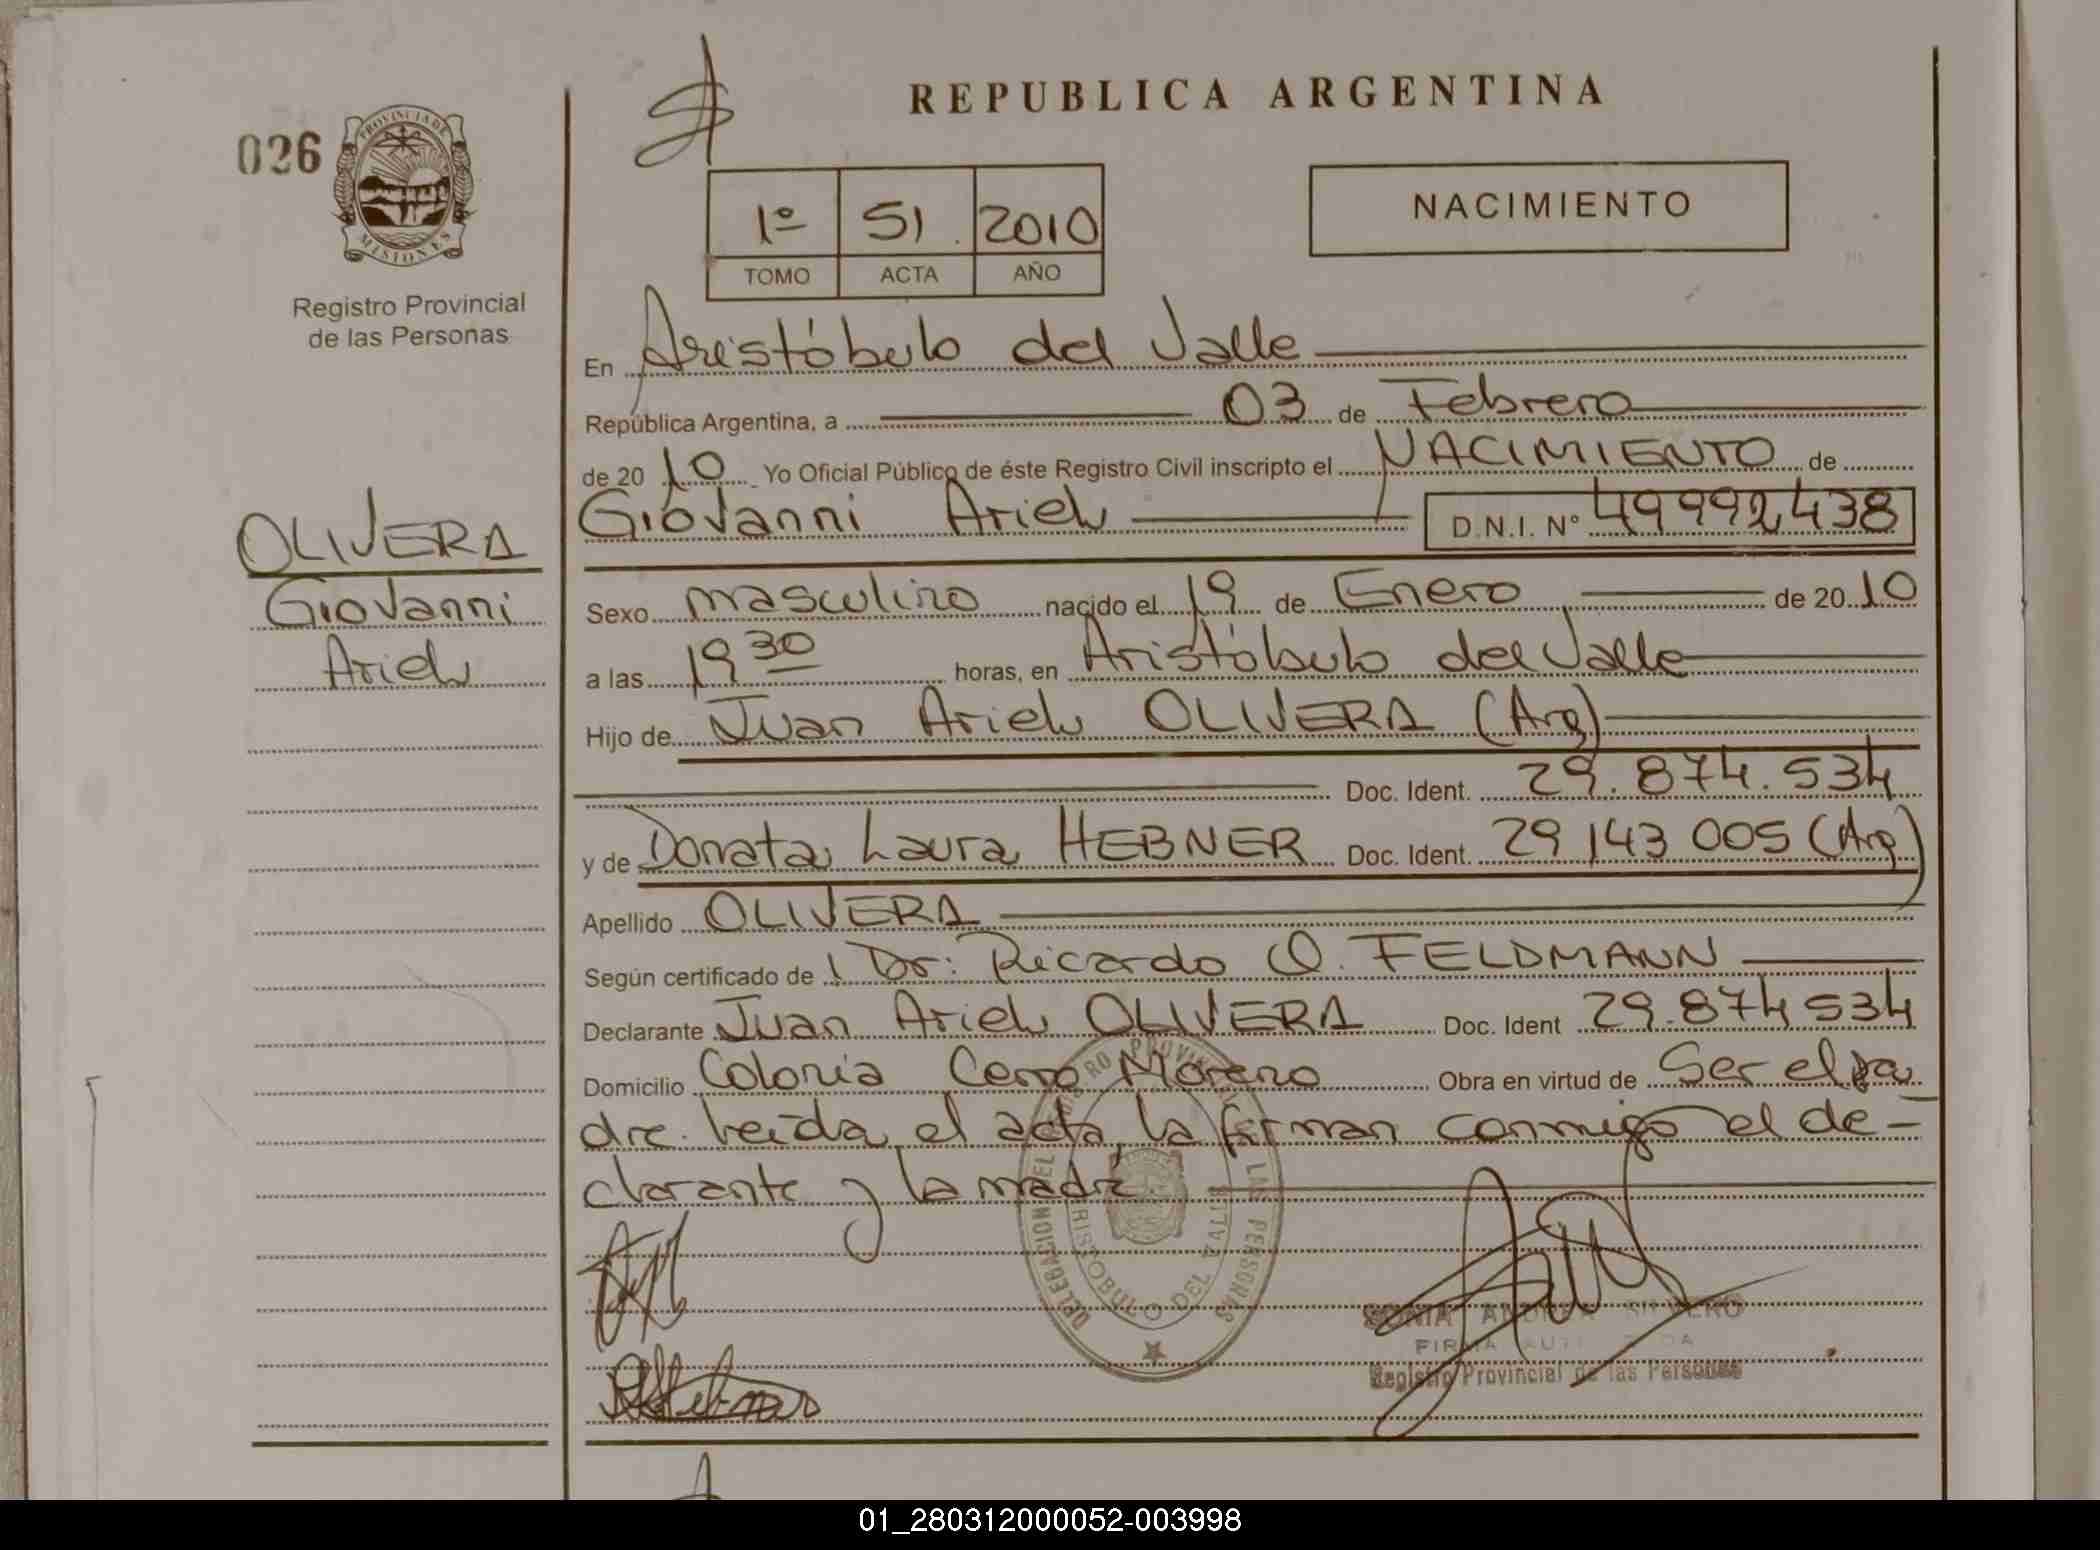 REPUBLICA ARGENTINA
026
PROVINCIA DE
MISIONES
Registro Provincial
de las Personas
1º 51 2010
TOMO ACTA AÑO
NACIMIENTO
En Aristóbulo del Valle
República Argentina, a 03 de Febrero
de 2010 Yo Oficial Público de éste Registro Civil inscripto el NACIMIENTO de
Giovanni Ariel D.N.I. Nº 49992438
OLIVERA
Giovanni
Ariel
Sexo masculino nacido el 19 de Enero de 2010
a las 19 30 horas, en Aristóbulo del Valle
Hijo de Juan Ariel OLIVERA (Arg)
Doc. Ident. 29.874.534
y de Donata Laura HEBNER Doc. Ident. 29 143 005 (Arg)
Apellido OLIVERA
Según certificado de Dr. Ricardo O. FELDMANN
Declarante Juan Ariel OLIVERA Doc. Ident 29.874 534
Domicilio Colonia Cerro Moreno Obra en virtud de Ser el pa
dre. Leida el acta, la firman conmigo el de-
clarante y la madre
DELEGACION DEL REGISTRO PROVINCIAL DE LAS PERSONAS
ARISTOBULO DEL VALLE MISIONES
SONIA ANDREA SILVERO
FIRMA AUTORIZADA
Registro Provincial de las Personas
01_280312000052-003998